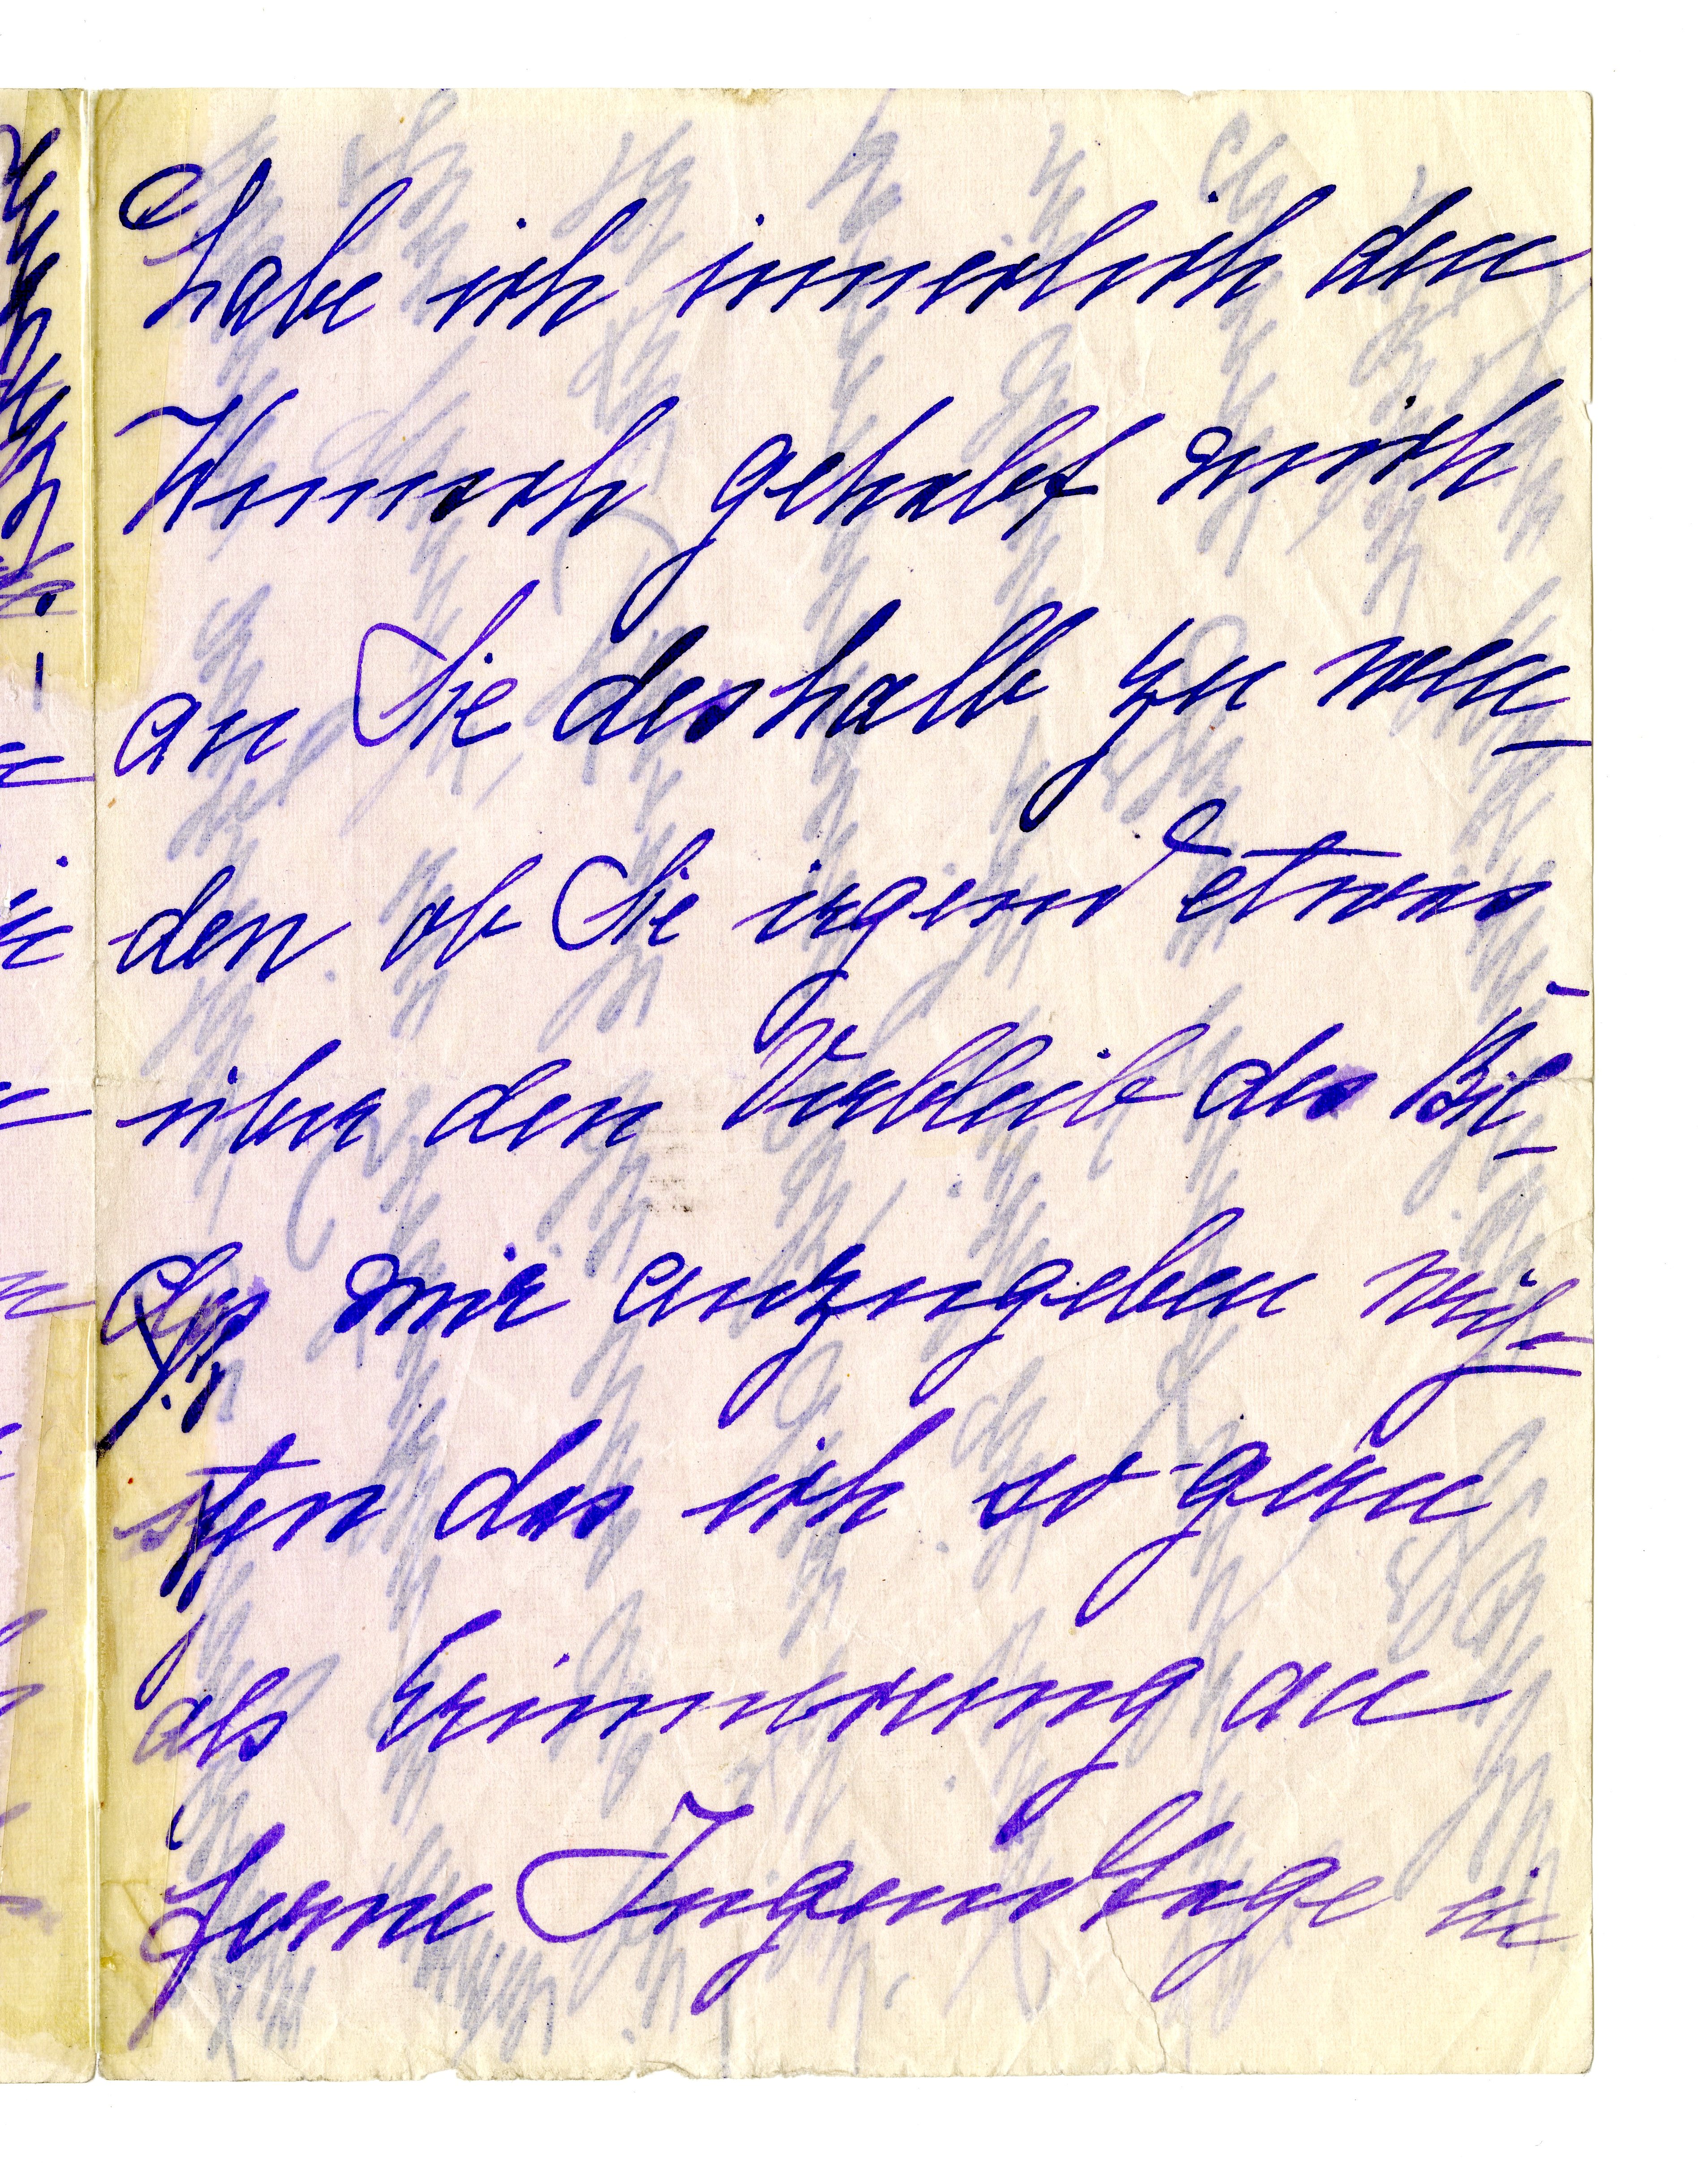 habe ich innerlich den
Wunsch gehabt mich
an Sie deshalb zu wen-
den ob Sie irgend etwas
über den Verbleib des Bil-
des mir anzugeben wüß-
sten das ich so gern
als Erinnerung an
ferne Jugendtage in